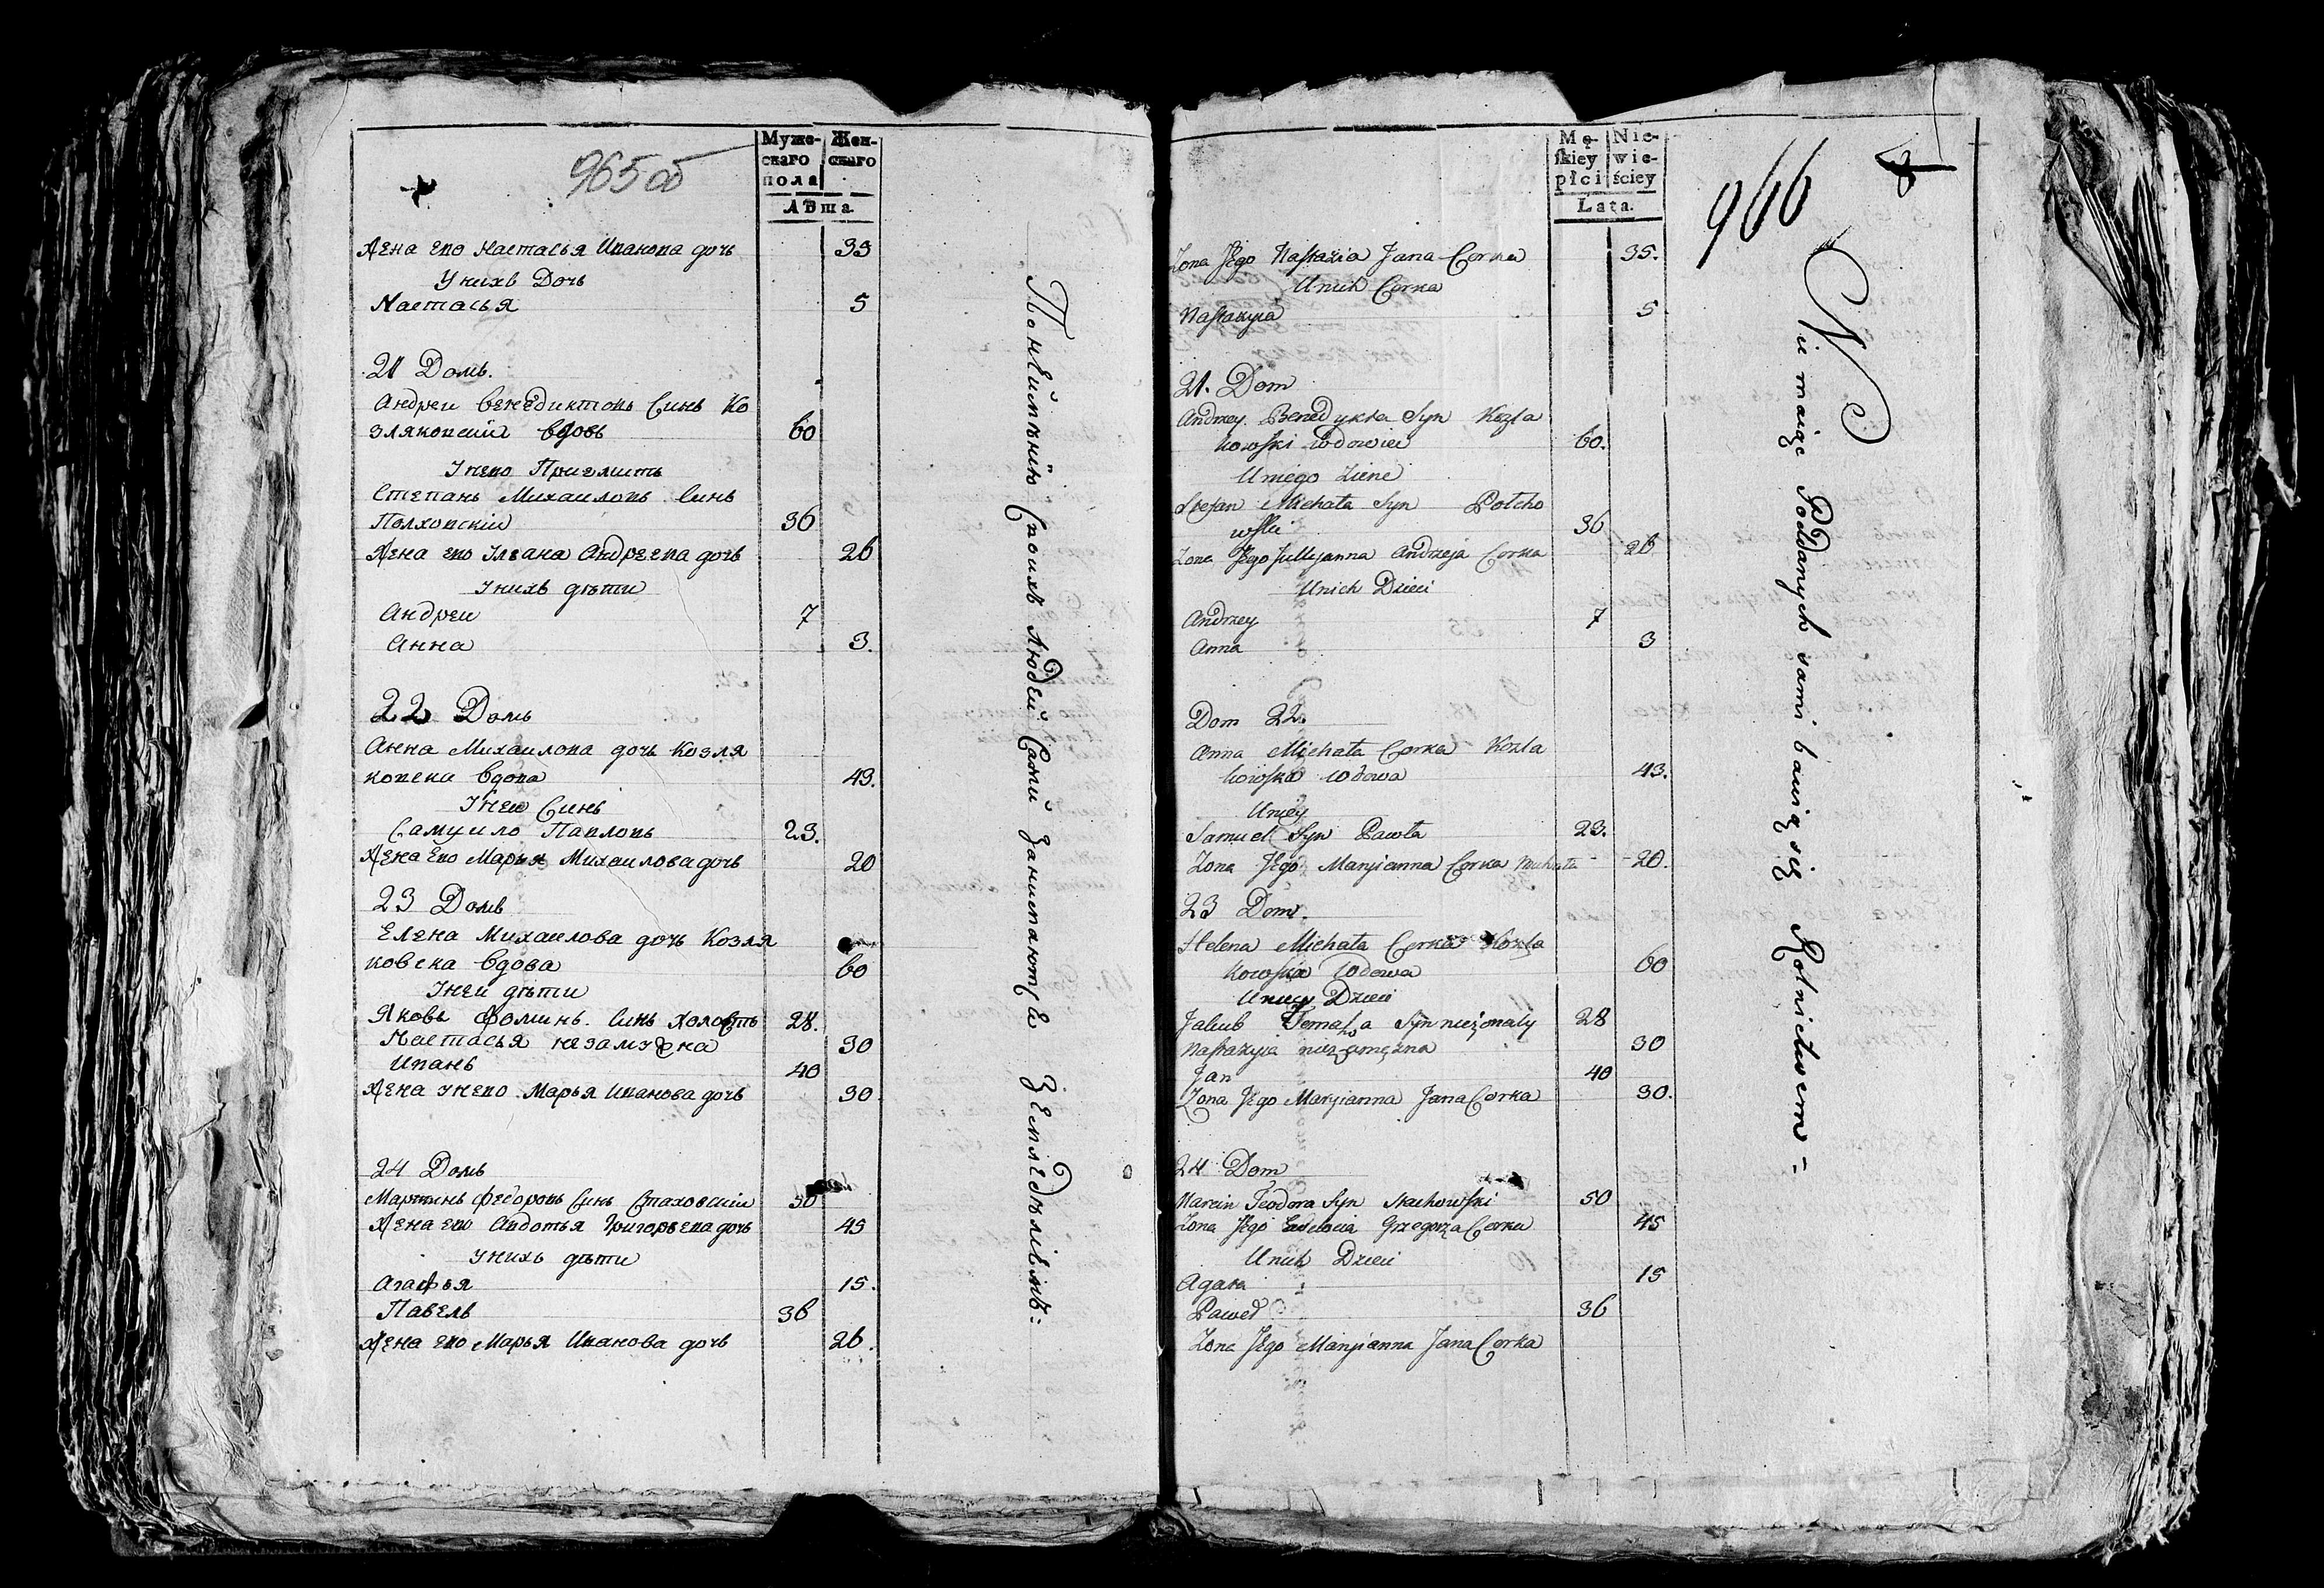 965 об
Муже-
скаго
пола
Жен-
скаго
Лѣта.
Жена его Настасья Иванова дочь 35
У нихъ Дочь
Настасья 5
21 Домъ.
Андреи Венедиктовъ Синъ Ко
зляковскии вдовъ 60
У него Приемишъ
Степанъ Михаиловъ Синъ
Полховскіи 36
Жена его Ульана Андреева дочь 26
У нихъ дѣти
Андреи 7
Анна 3.
22 Домъ
Анна Михаилова дочь Козля
ковска вдова 43.
У неи Синъ
Самуило Павловъ 23.
Жена Его Марья Михаилова дочь 20
23 Домъ
Елена Михаилова дочь Козля
ковска вдова 60
У неи дѣти
Яковъ Фоминъ. Синъ Холостъ 28.
Настасья незамужна 30
Иванъ 40
Жена у него Марья Иванова дочь 30
24 Домъ
Мартинъ Федоровъ Синъ Стаховскіи 50
Жена его Авдотья Григорьева дочь 45
У нихъ дѣти
Агафья 15.
Павелъ 36
Жена его Марья Иванова дочь 26.
Понеимѣнію Своихъ Людей Сами Занимаются Земледѣліемъ:
966
Mę-
skiey
płci
Nie-
wie-
ściey
Lata.
Zona Jego Nastazia Jana Corka 35.
Unich Corka
Nastazyia 5
21. Dom
Andrzey Benedykta Syn Kozla
kowski wdowiec 60.
Uniego Ziene
Stefan Michała Syn Połcho
wski 36
Zona Jego Jullyanna Andrzeja Corka 26
Unich Dzieci
Andrzey 7
Anna 3
Dom 22.
Anna Michała Corka Kozla
kowska wdowa 43.
Uniey
Samuel Syn Pawła 23.
Zona Jego Maryianna Corka Michała 20.
23 Dom.
Helena Michała Corka Kozla
kowska wdowa 60
Uniey Dzieci
Jakub Tomasza Syn nieżonaty 28
Nastazyia niezamężna 30
Jan 40
Zona Jego Maryianna Jana Corka 30.
24 Dom
Marcin Teodora Syn Stachowski 50
Zona Jego Grzegorza Corka 45
Unich Dzieci
Agata 15
Paweł 36
Zona Jego Maryianna Jana Corka
Nie maiąc Poddanych sami bawią się Rolnictwem =